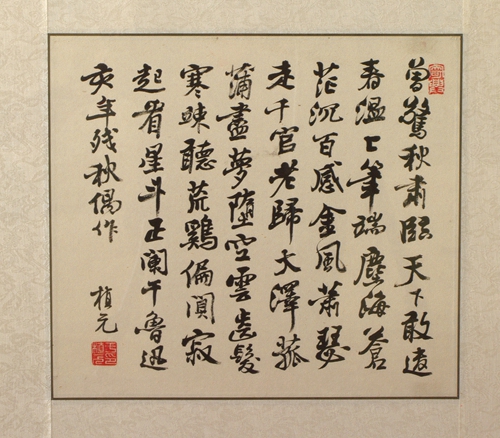 曾驚秋肅臨天下敢遣
春溫上筆端塵海蒼
茫沉百感金風蕭瑟
走千官老歸大澤菰
蒲盡夢墮空雲齒髮
寒竦聽荒鷄偏闃寂
起看星斗正闌干魯迅
亥年残秋偶作
植元